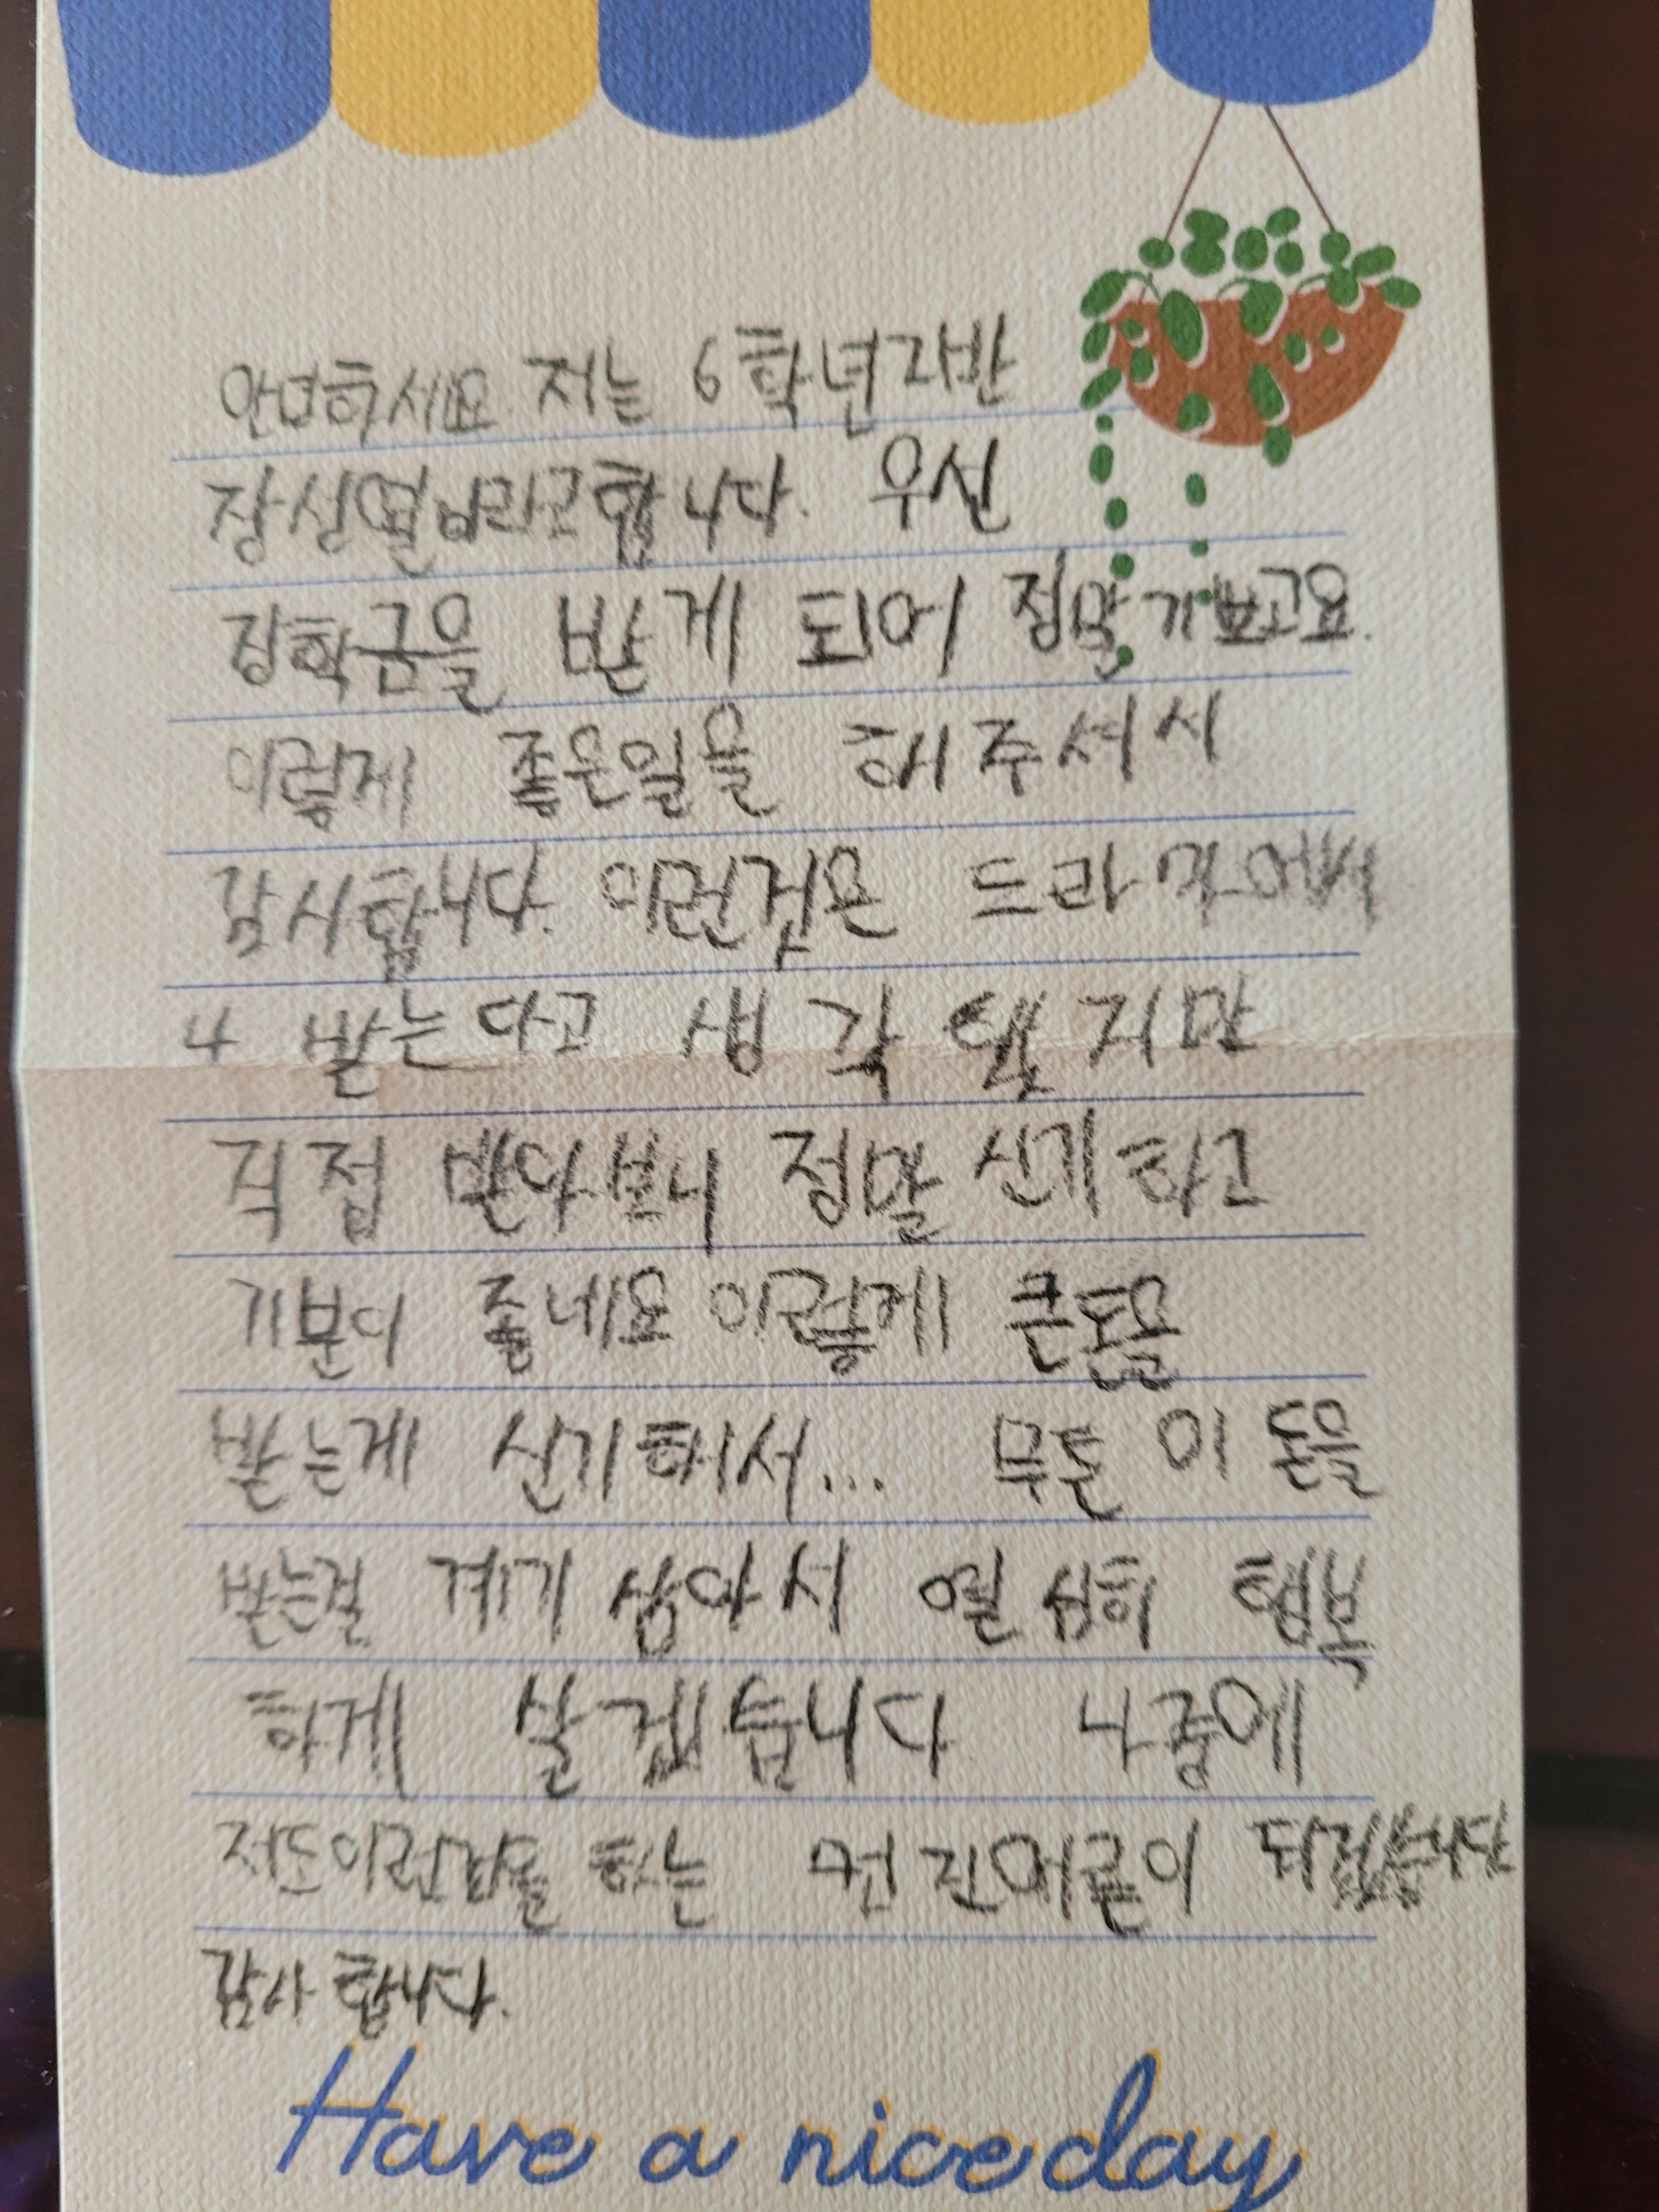 안녕하세요 저는 6학년 2반
장성열 이라고합니다. 우선
장학금을 받게 되어 정말 기쁘고요.
이렇게 좋은일을 해주셔서
감사합니다. 이런것은 드라마에서
나 받는다고 생각했지만
직접 받아보니 정말 신기하고
기분이 좋네요 이렇게 큰돈을
받는게 신기해서... 무튼 이 돈을
받는걸 계기 삼아서 열심히 행복
하게 살겠습니다 나중에
저도이런것을 하는 멋진어른이 되겠습니다
감사합니다.
Have a nice day